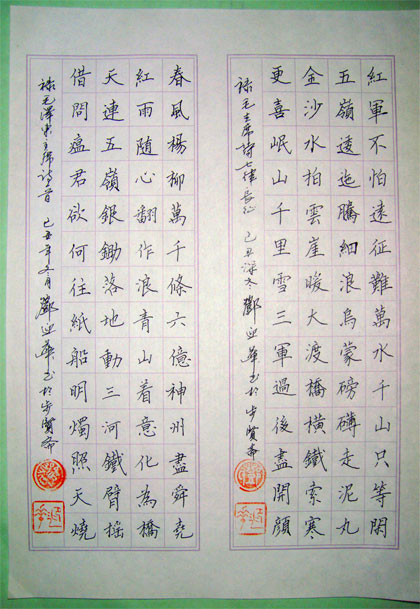 紅軍不怕遠征難萬水千山只等閑
五嶺逶迤騰細浪烏蒙磅礴走泥丸
金沙水拍雲崖暖大渡橋橫鐵索寒
更喜岷山千里雪三軍過後盡開顏
錄毛主席詩七律長征 己丑深冬 鄧迎華书於步賢斋
春風楊柳萬千條六億神州盡舜堯
紅雨随心翻作浪青山着意化為橋
天連五嶺銀鋤落地動三河鐵臂摇
借問瘟君欲何往紙船明燭照天燒
錄毛澤東主席詩一首 己丑年 月 鄧迎華书於步賢斋